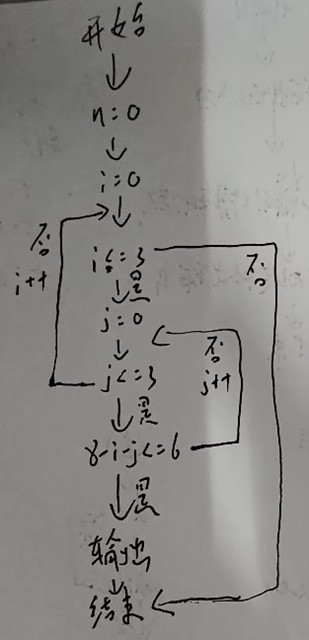 开始
n=0
i=0
否
i++
i<=3
否
是
j=0
否
j++
j<=3
是
8-i-j<=6
是
输出
结束